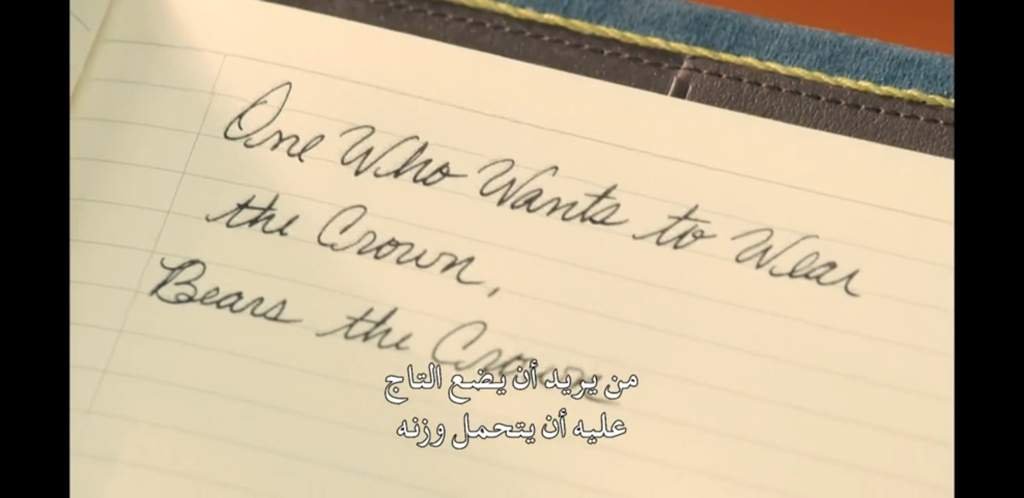 One Who Wants to Wear
the Crown,
Bears the Crown
من يريد أن يضع التاج
عليه أن يتحمل وزنه